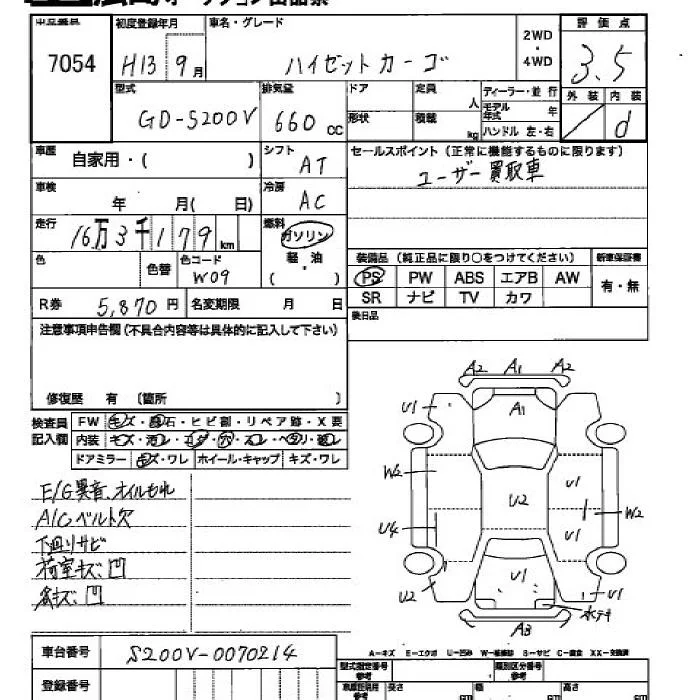 7054
初度登録年月
H13 9月
車名・グレード
ハイゼットカーゴ
2WD
・
4WD
評価点
3.5
外装 内装
d
型式
GD-S200V
排気量
660 cc
ドア
形状
定員
人
積載
kg
ディーラー・並行
モデル年式 年
ハンドル 左・右
車歴
自家用・( )
シフト
AT
セールスポイント (正常に機能するものに限ります)
ユーザー買取車
車検
年 月( 日)
冷房
AC
走行
16万3千179km
燃料
ガソリン
軽・油
( )
色
色替
色コード
W09
装備品 (純正品に限り○をつけてください)
新車保証書
PS PW ABS エアB AW
SR ナビ TV カワ
有・無
R券 5,870円
名変期限 月 日
後日品
注意事項申告欄 (不具合内容等は具体的に記入して下さい)
修復歴 有 〔箇所 〕
検査員
記入欄
FW キズ・飛石・ヒビ割・リペア跡・X要
内装
ドアミラー キズ・ワレ ホイール・キャップ キズ・ワレ
E/G異音、オイルもれ
A/Cベルト欠
下廻りサビ
荷室キズ、凹
各キズ、凹
A2 A1 A2
A1
U1
W2
U2
U1
W2
U4
U1
U2
U1
U1
A3
A-キズ E-エクボ U-凹み W-補修跡 S-サビ C-腐食 XX-交換済
車台番号
S200V-0070214
登録番号
型式指定番号
参考
類別区分番号
参考
長さ
幅
高さ